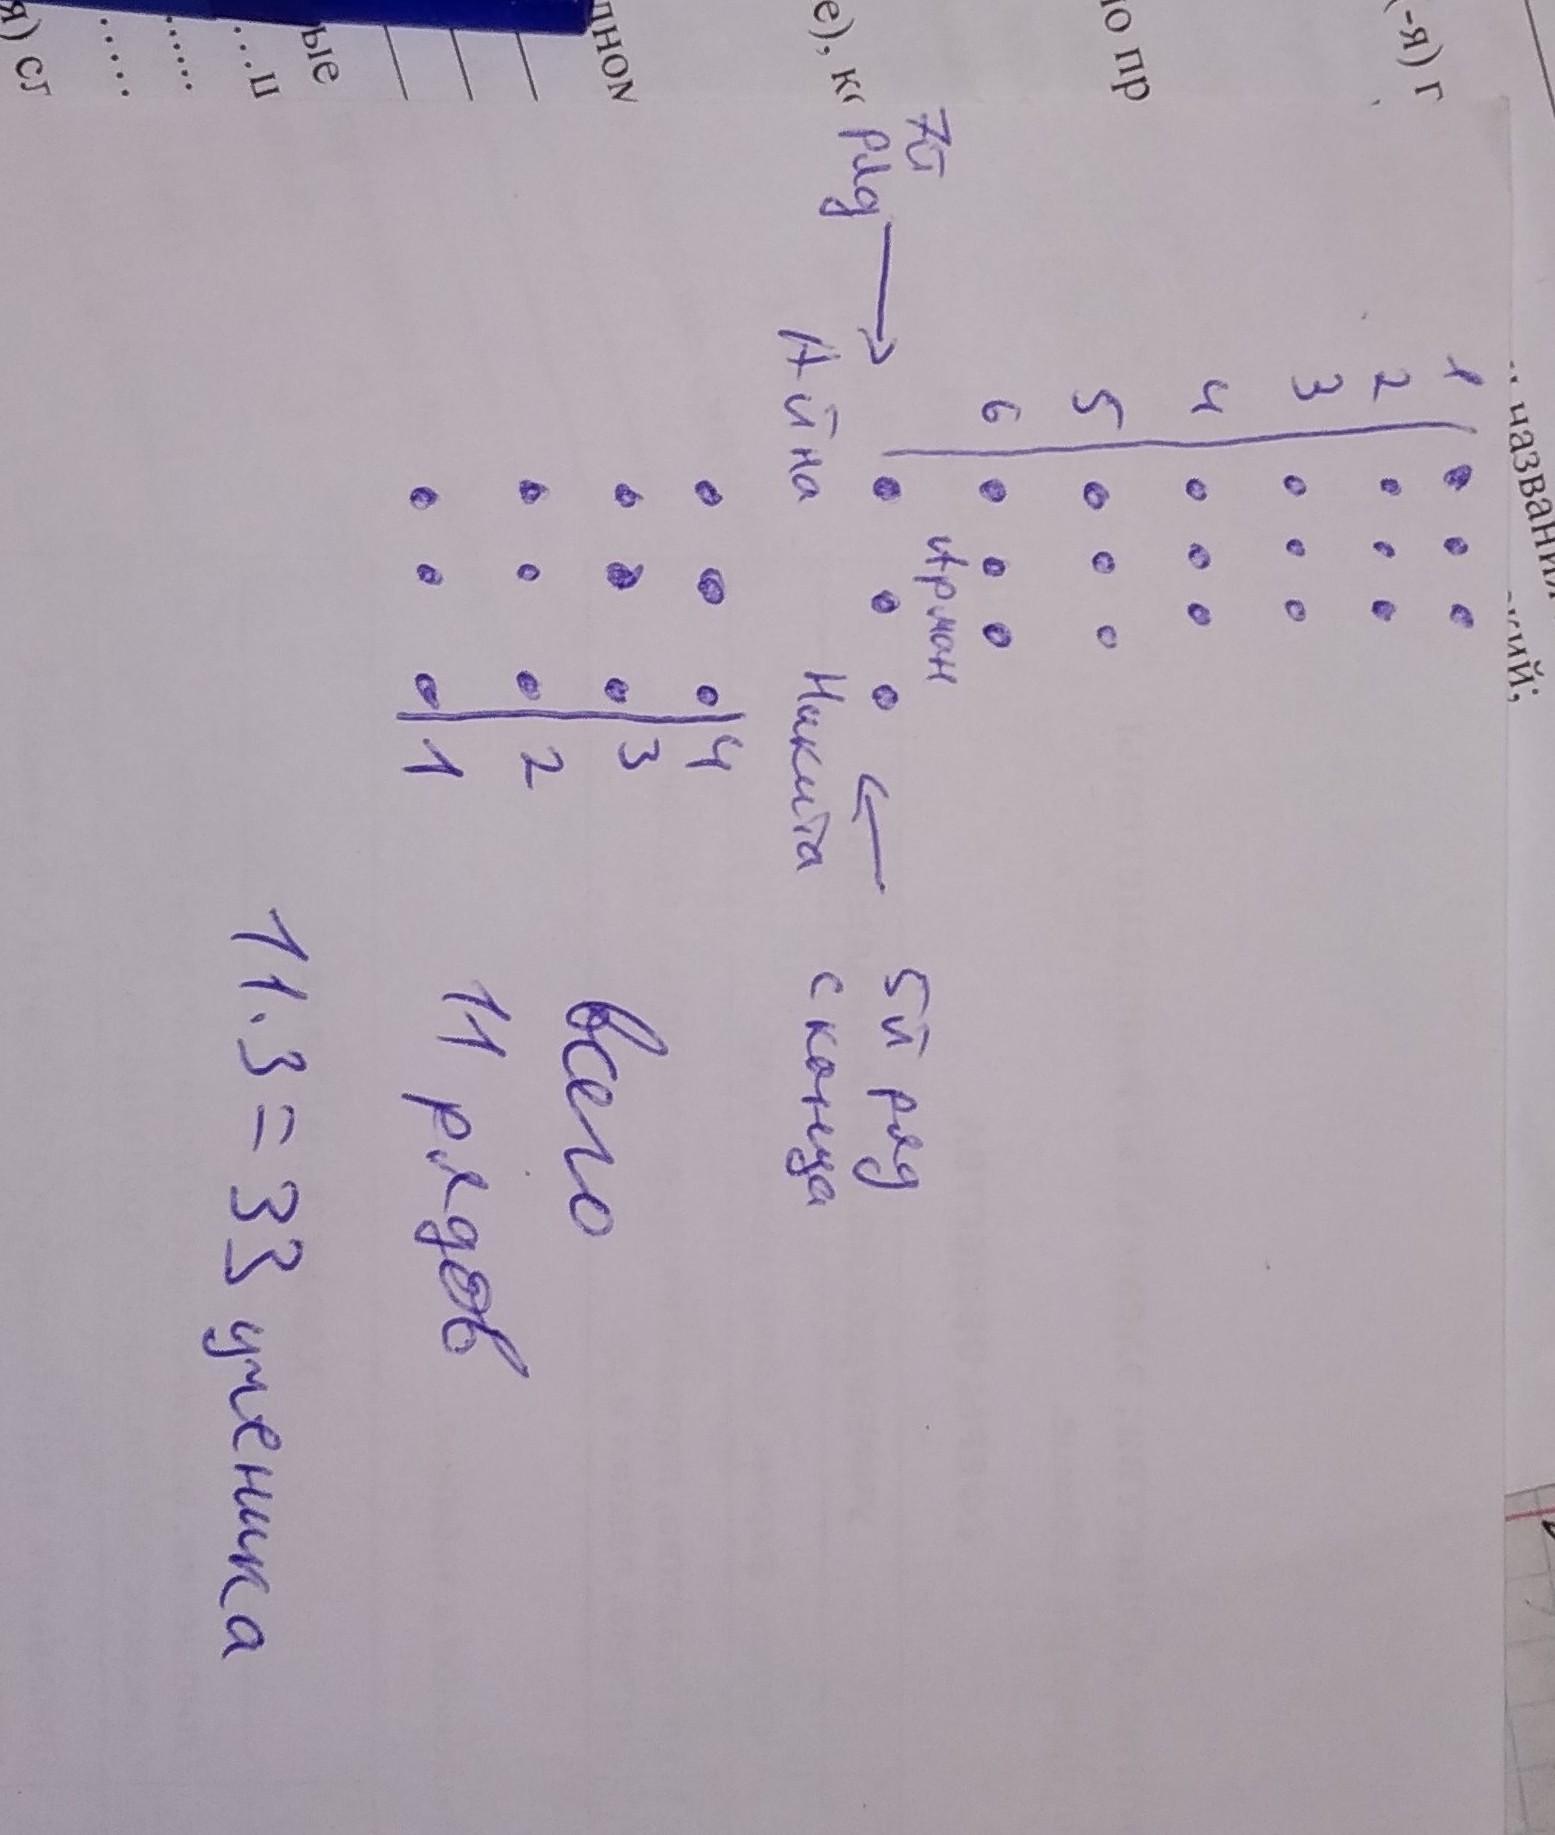 1
2
3
4
5
6
7й
ряд
Арман
Айна
Никита
5й ряд
с конца
4
3
2
1
всего
11 рядов
11·3=33 ученика
названия
кий;
(-я) г
о пр
е), к
дном
ые
...ц
......
.....
я) сл